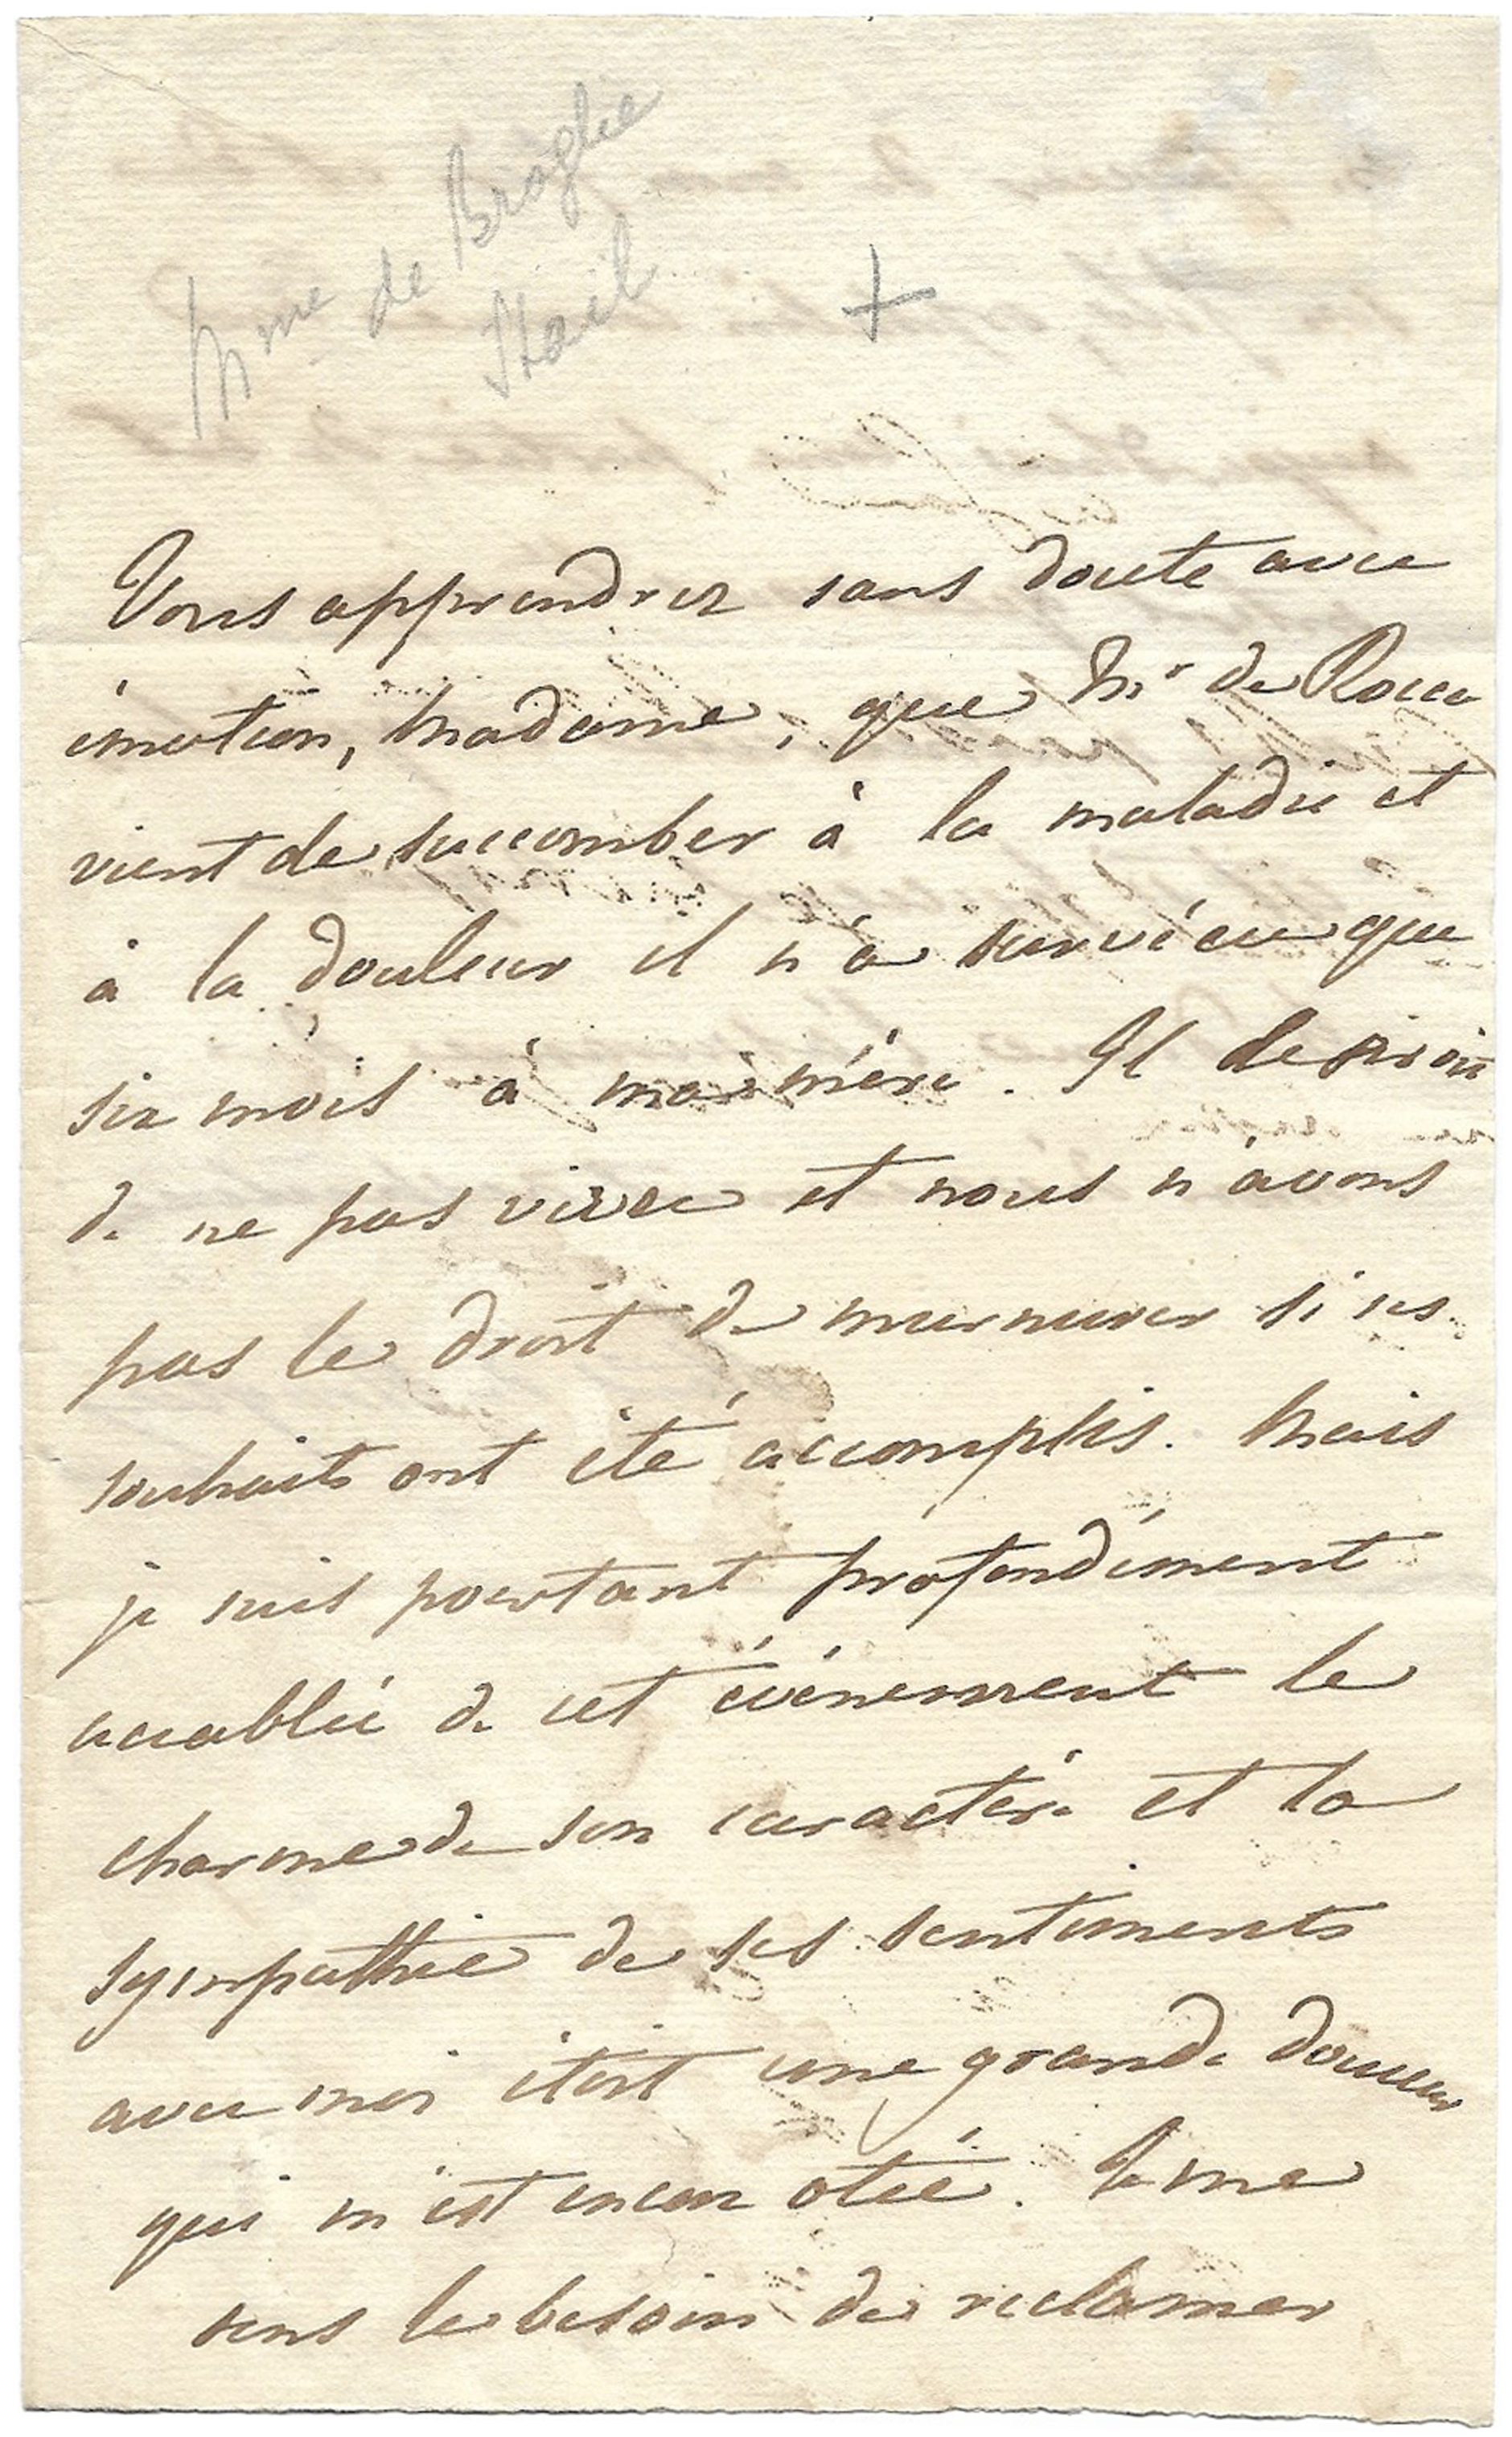 Mme de Broglie
Stael
+
Vous apprendrez sans doute avec
émotion, Madame, que Mr de Rocca
vient de succomber à la maladie et
à la douleur il n'a survécu que
six mois à ma mère. Il desiroit
de ne pas vivre et nous n'avons
pas le droit de murmurer si ses
souhaits ont été accomplis. Mais
je suis pourtant profondément
accablée de cet événement le
charme de son caractère et la
sympathie de ses sentiments
avec moi étoit une grande douceur
qui m'est encor otée. Je me
sens le besoin de reclamer